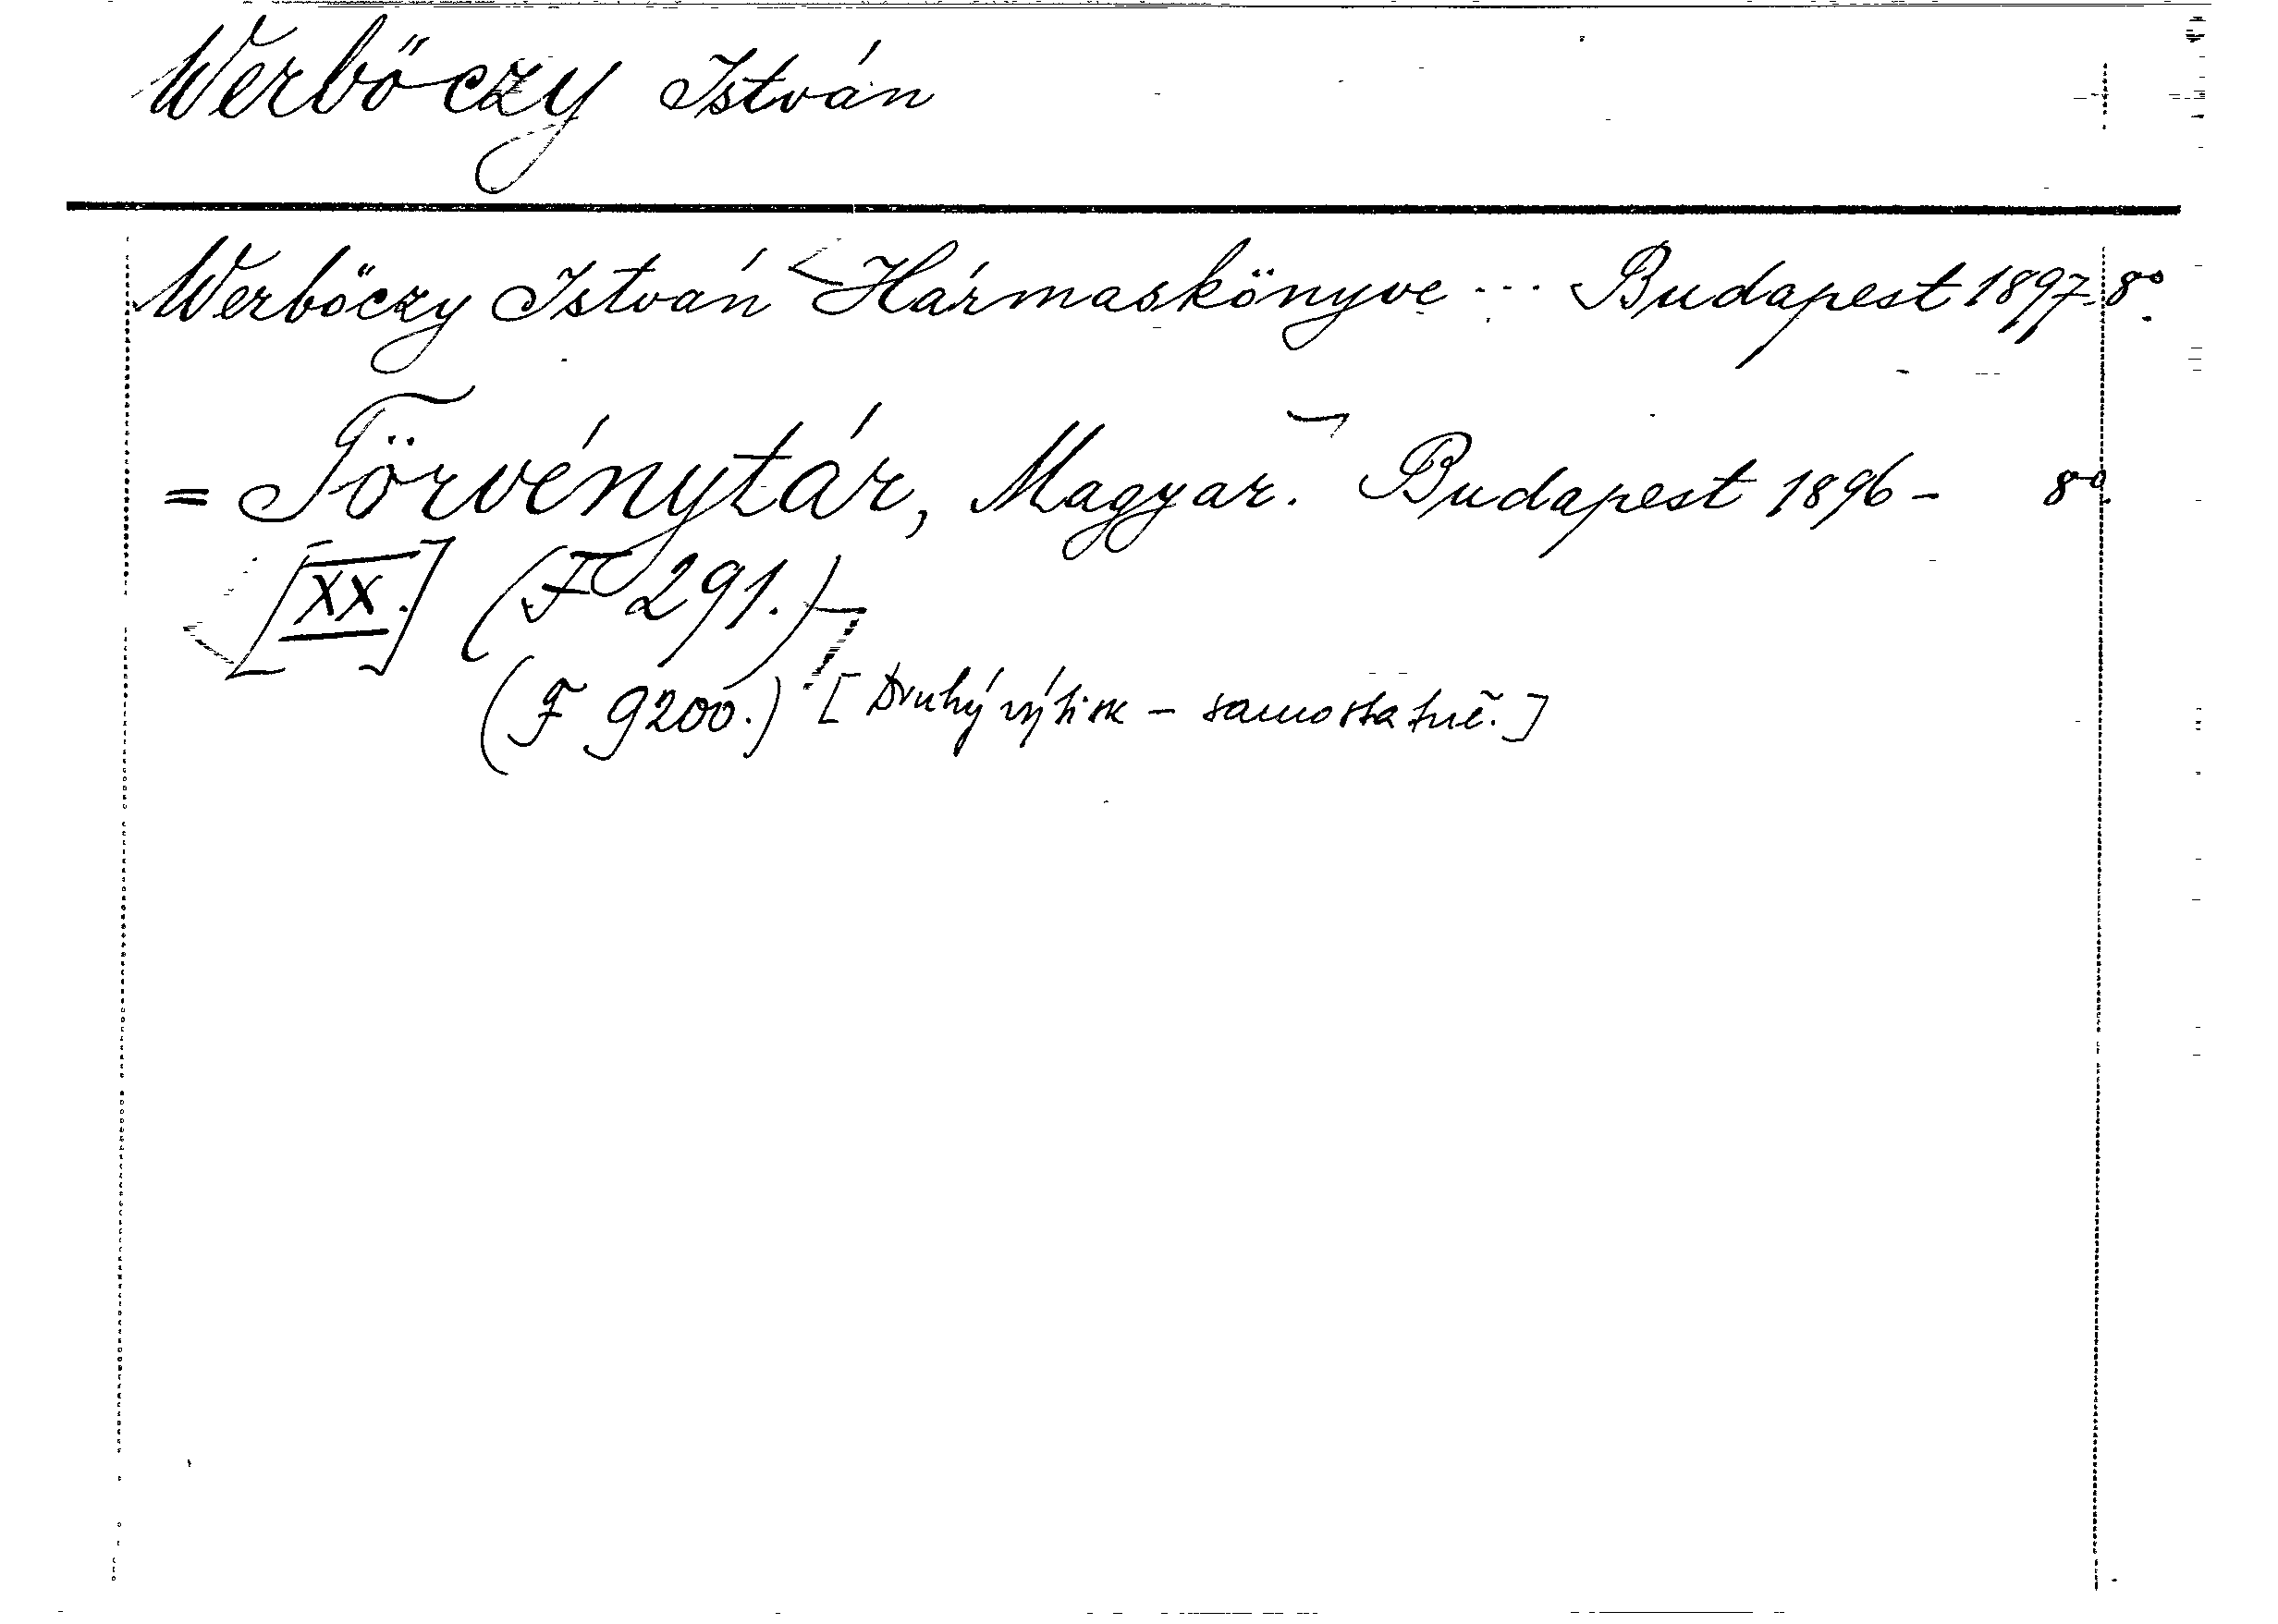 Werbőczy István
Werbőczy István Hármaskönyve ... Budapest 1897. 8°.
= Törvénytár, Magyar. Budapest 1896 - 8°.
[XX.] (F 291.)
(F 9200.) [Druhý výtisk - samostatně.]